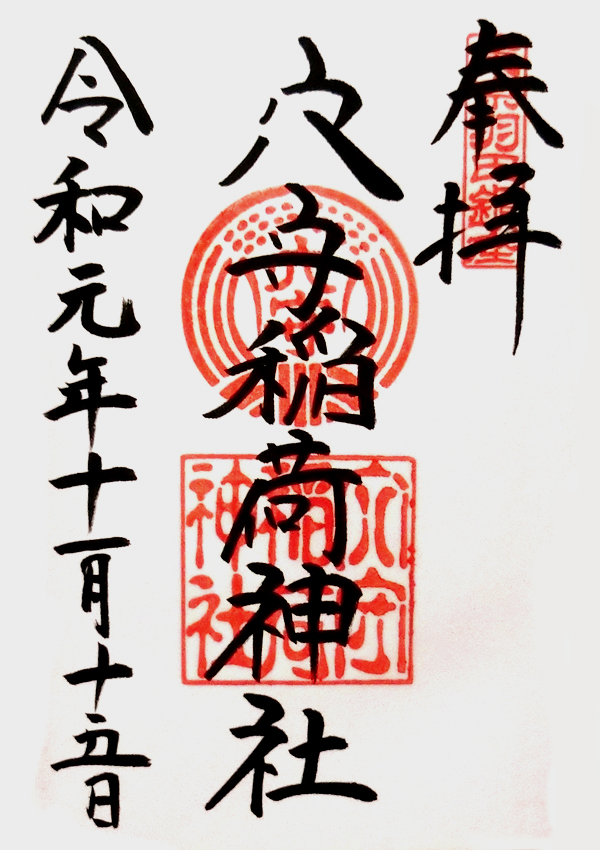 奉拝
東京羽田鎮座
穴守稲荷神社
穴守
稲荷
神社
令和元年十一月十五日